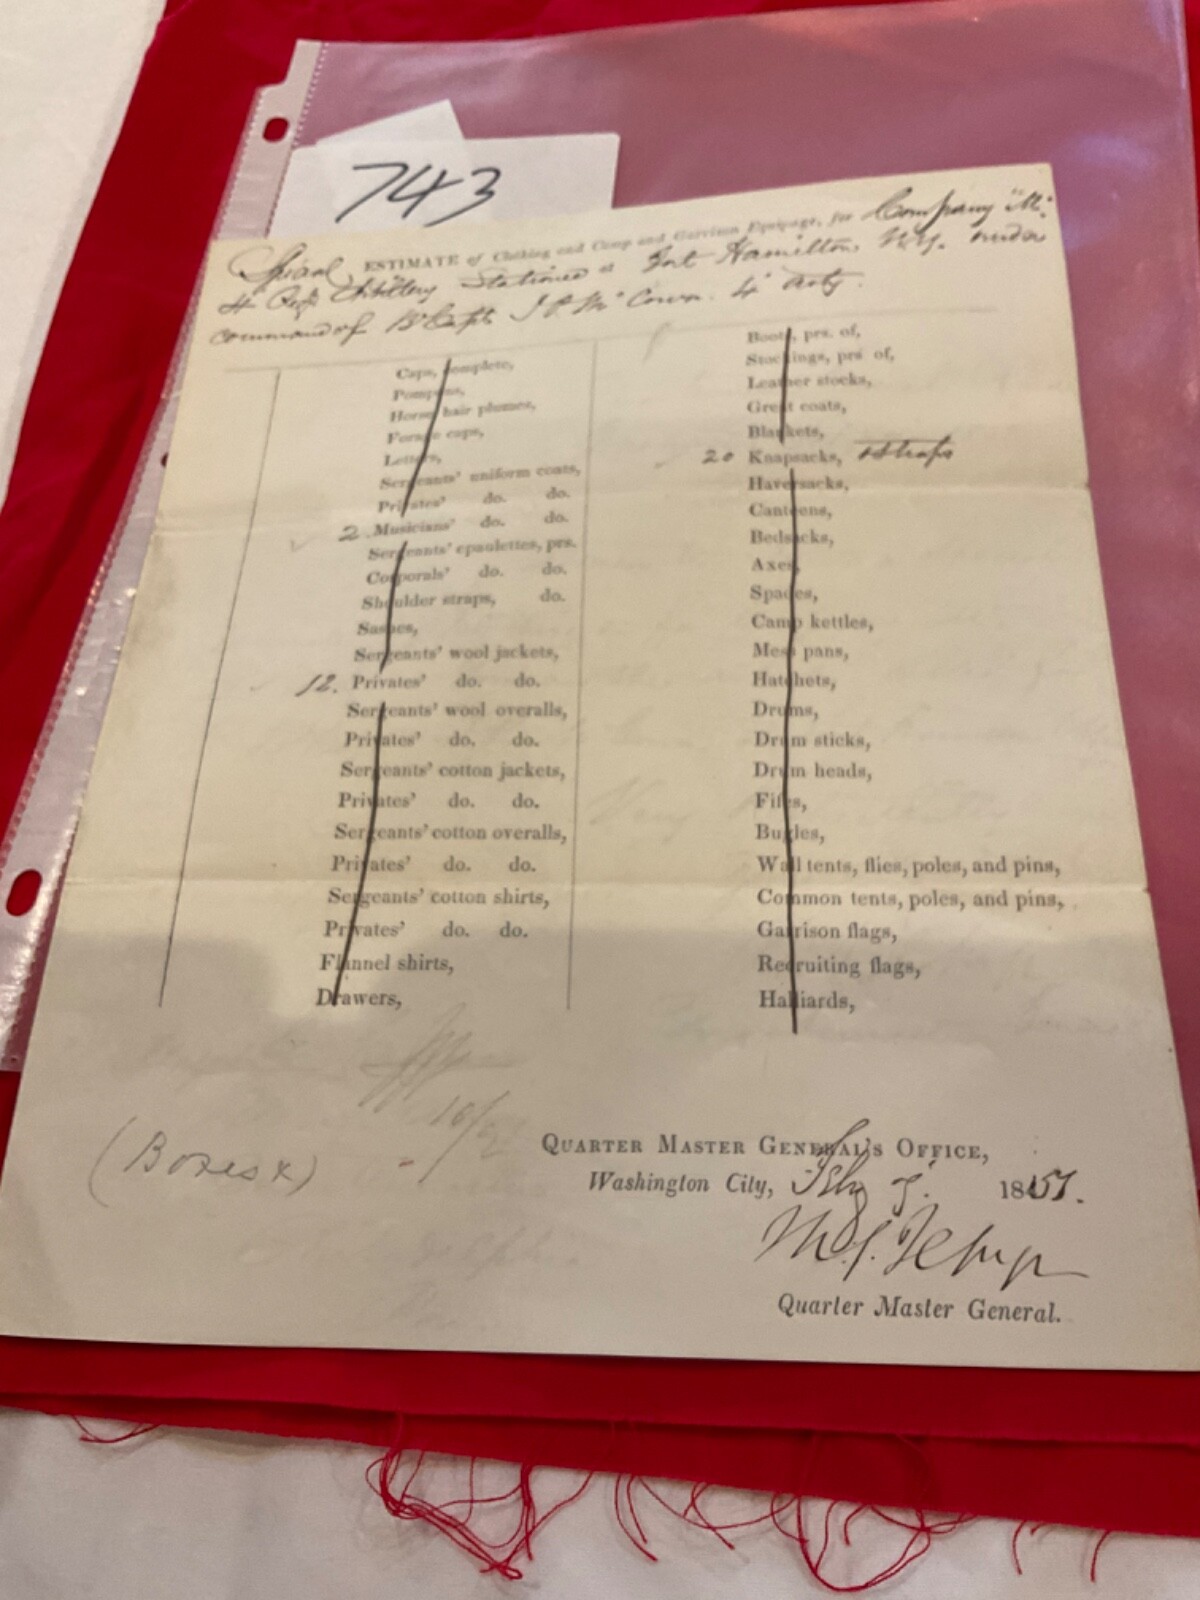 743
Special ESTIMATE of Clothing and Camp and Garrison Equipage, for Company "M"
4th Regt Artillery Stationed at Fort Hamilton N.Y. under
command of Bt Capt J P Mc Cown. 4th Arty.
Caps, complete,
Pompons,
Horse hair plumes,
Forage caps,
Letters,
Sergeants' uniform coats,
Privates' do. do.
2 Musicians' do. do.
Sergeants' epaulettes, prs.
Corporals' do. do.
Shoulder straps, do.
Sashes,
Sergeants' wool jackets,
12. Privates' do. do.
Sergeants' wool overalls,
Privates' do. do.
Sergeants' cotton jackets,
Privates' do. do.
Sergeants' cotton overalls,
Privates' do. do.
Sergeants' cotton shirts,
Privates' do. do.
Flannel shirts,
Drawers,
Boots, prs. of,
Stockings, prs of,
Leather stocks,
Great coats,
Blankets,
20 Knapsacks, & Straps
Haversacks,
Canteens,
Bedsacks,
Axes,
Spades,
Camp kettles,
Mess pans,
Hatchets,
Drums,
Drum sticks,
Drum heads,
Fifes,
Bugles,
Wall tents, flies, poles, and pins,
Common tents, poles, and pins,
Garrison flags,
Recruiting flags,
Halliards,
(Boxes x)
QUARTER MASTER GENERAL'S OFFICE,
Washington City, Feby 1851.
Quarter Master General.